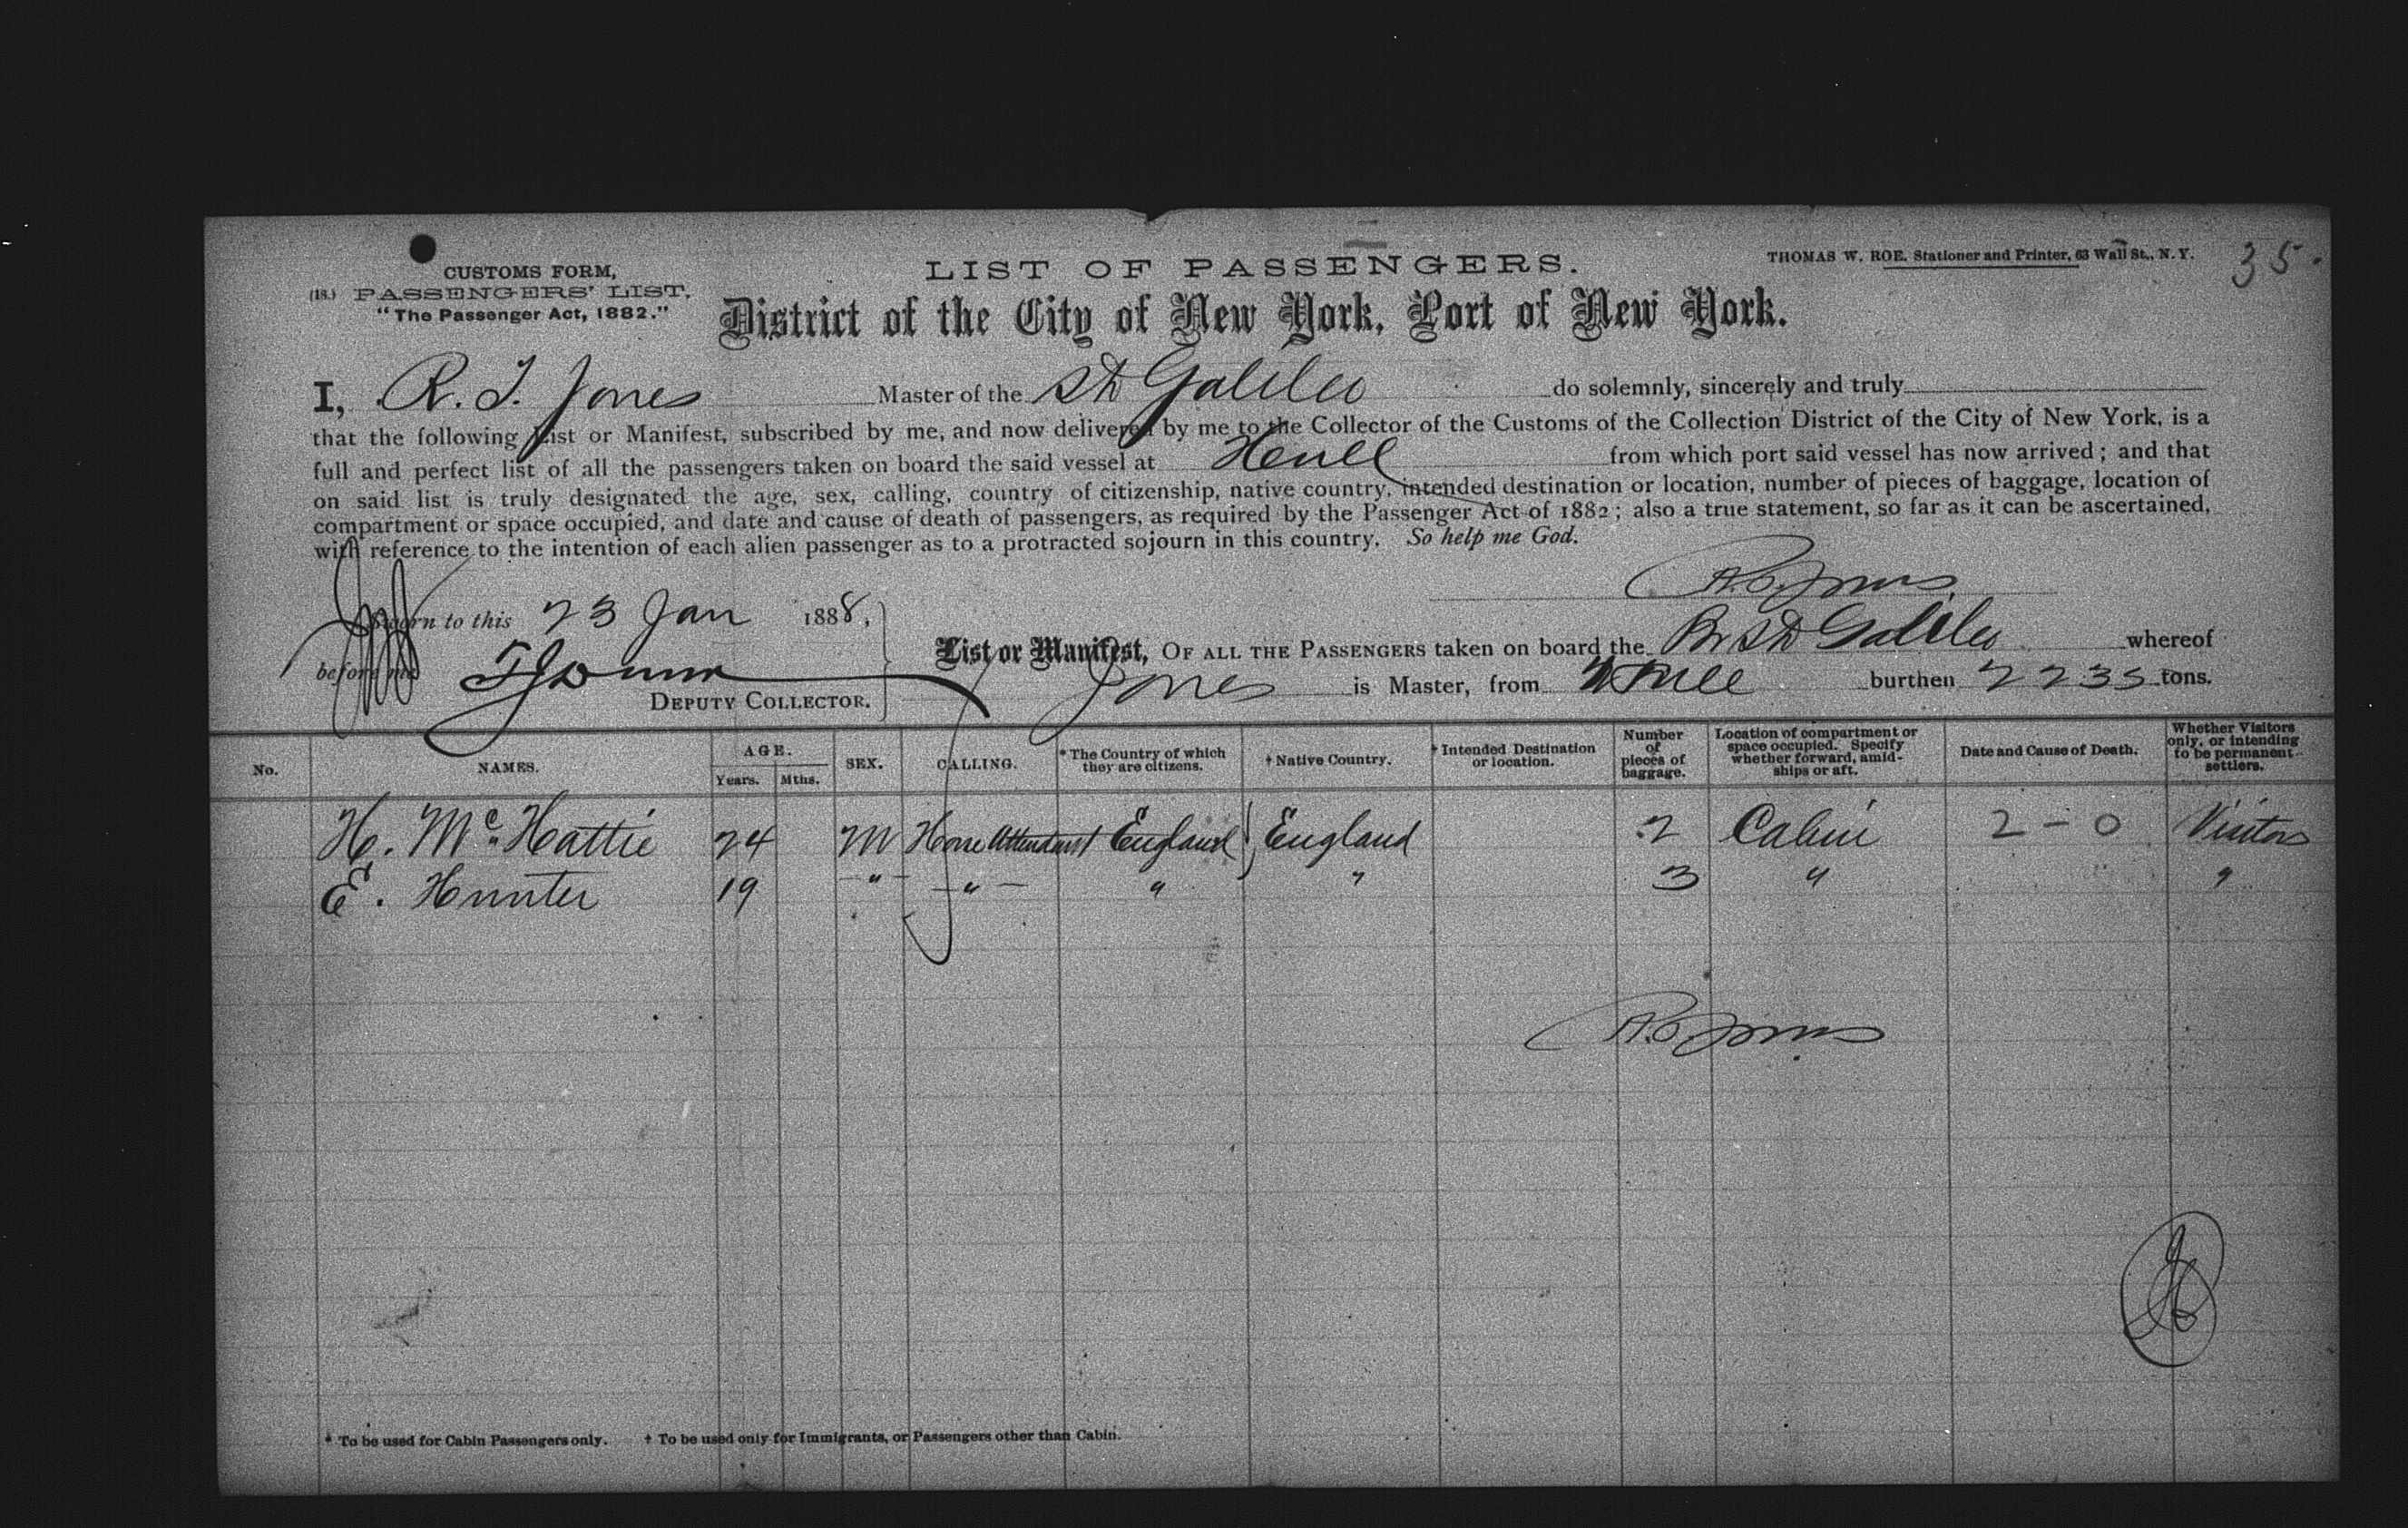 35.
CUSTOMS FORM,
(18.) PASSENGERS' LIST,
"The Passenger Act, 1882."
LIST OF PASSENGERS.
THOMAS W. ROE, Stationer and Printer, 63 Wall St., N. Y.
District of the City of New York, Port of New York.
I, R. T. Jones Master of the Galileo do solemnly, sincerely and truly
that the following List or Manifest, subscribed by me, and now delivered by me to the Collector of the Customs of the Collection District of the City of New York, is a
full and perfect list of all the passengers taken on board the said vessel at Hull from which port said vessel has now arrived; and that
on said list is truly designated the age, sex, calling, country of citizenship, native country, intended destination or location, number of pieces of baggage, location of
compartment or space occupied, and date and cause of death of passengers, as required by the Passenger Act of 1882; also a true statement, so far as it can be ascertained,
with reference to the intention of each alien passenger as to a protracted sojourn in this country. So help me God.
Jones
Sworn to this 23 Jan 1888,
before me
DEPUTY COLLECTOR.
List or Manifest, OF ALL THE PASSENGERS taken on board the Br Galileo whereof
Jones is Master, from Hull burthen 2235 tons.
No. NAMES. AGE. Years. Mths. SEX. CALLING. * The Country of which they are citizens. † Native Country. † Intended Destination or location. Number of pieces of baggage. Location of compartment or space occupied. Specify whether forward, amid-ships or aft. Date and Cause of Death. Whether Visitors only, or intending to be permanent settlers.
H. Mc. Hattie 24 M Horse Attendant England England 2 Cabin 2 - 0 Visitors
E. Hunter 19 " " " " 3 " "
Jones
* To be used for Cabin Passengers only. † To be used only for Immigrants, or Passengers other than Cabin.